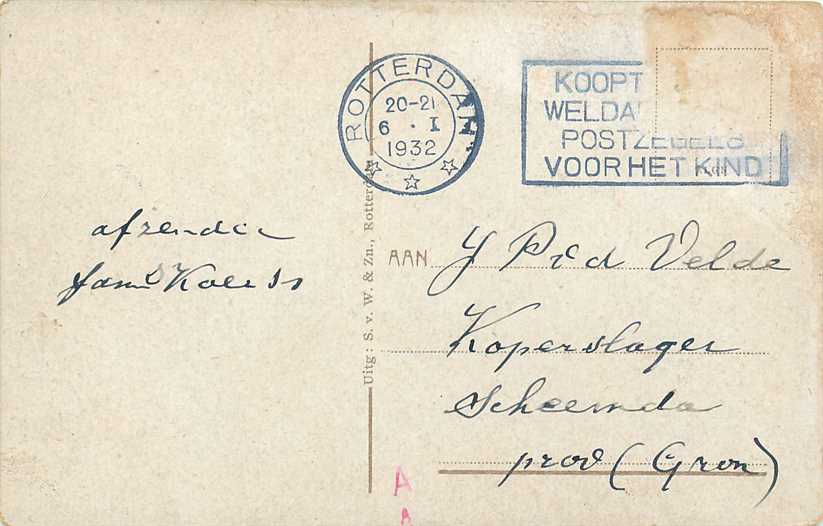 ROTTERDAM
20-21
6 . I
1932
KOOPT
WELDA
POSTZEGELS
VOOR HET KIND
afzender
fam
AAN
Velde
Koperslager
Scheemda
prov (Gron)
Uitg: S. v. W. & Zn., Rotterdam
A
A